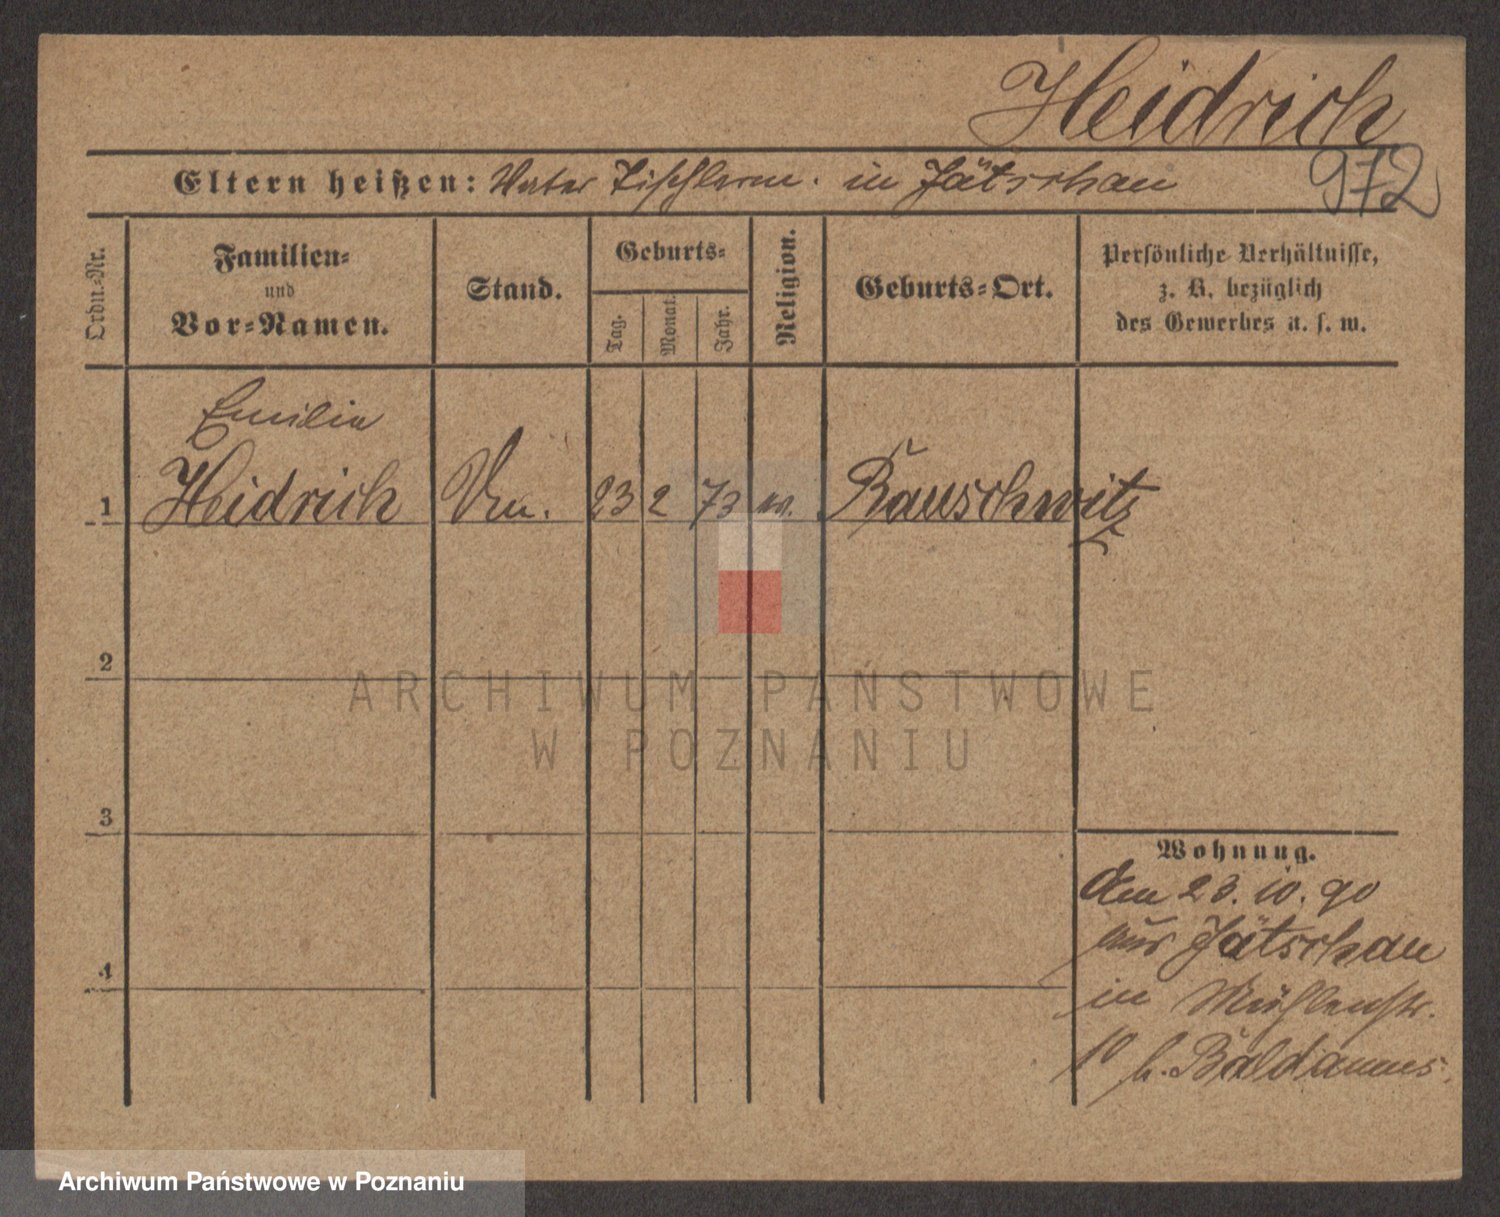 Heidrich
972
Eltern heißen: Vater Tischlerm. in Jätschau
Ordn.-Nr.
Familien-
und
Vor-Namen.
Stand.
Geburts-
Tag.
Monat.
Jahr.
Religion.
Geburts-Ort.
Persönliche Verhältnisse,
z. B. bezüglich
des Gewerbes u. s. w.
Emilie
1 Heidrich 23 2 73 Bauschwitz
2
3
4
Wohnung.
den 23. 10. 90
aus Jätschau
in Mühlenstr.
10 b. Baldamus
ARCHIWUM PAŃSTWOWE
W POZNANIU
Archiwum Państwowe w Poznaniu